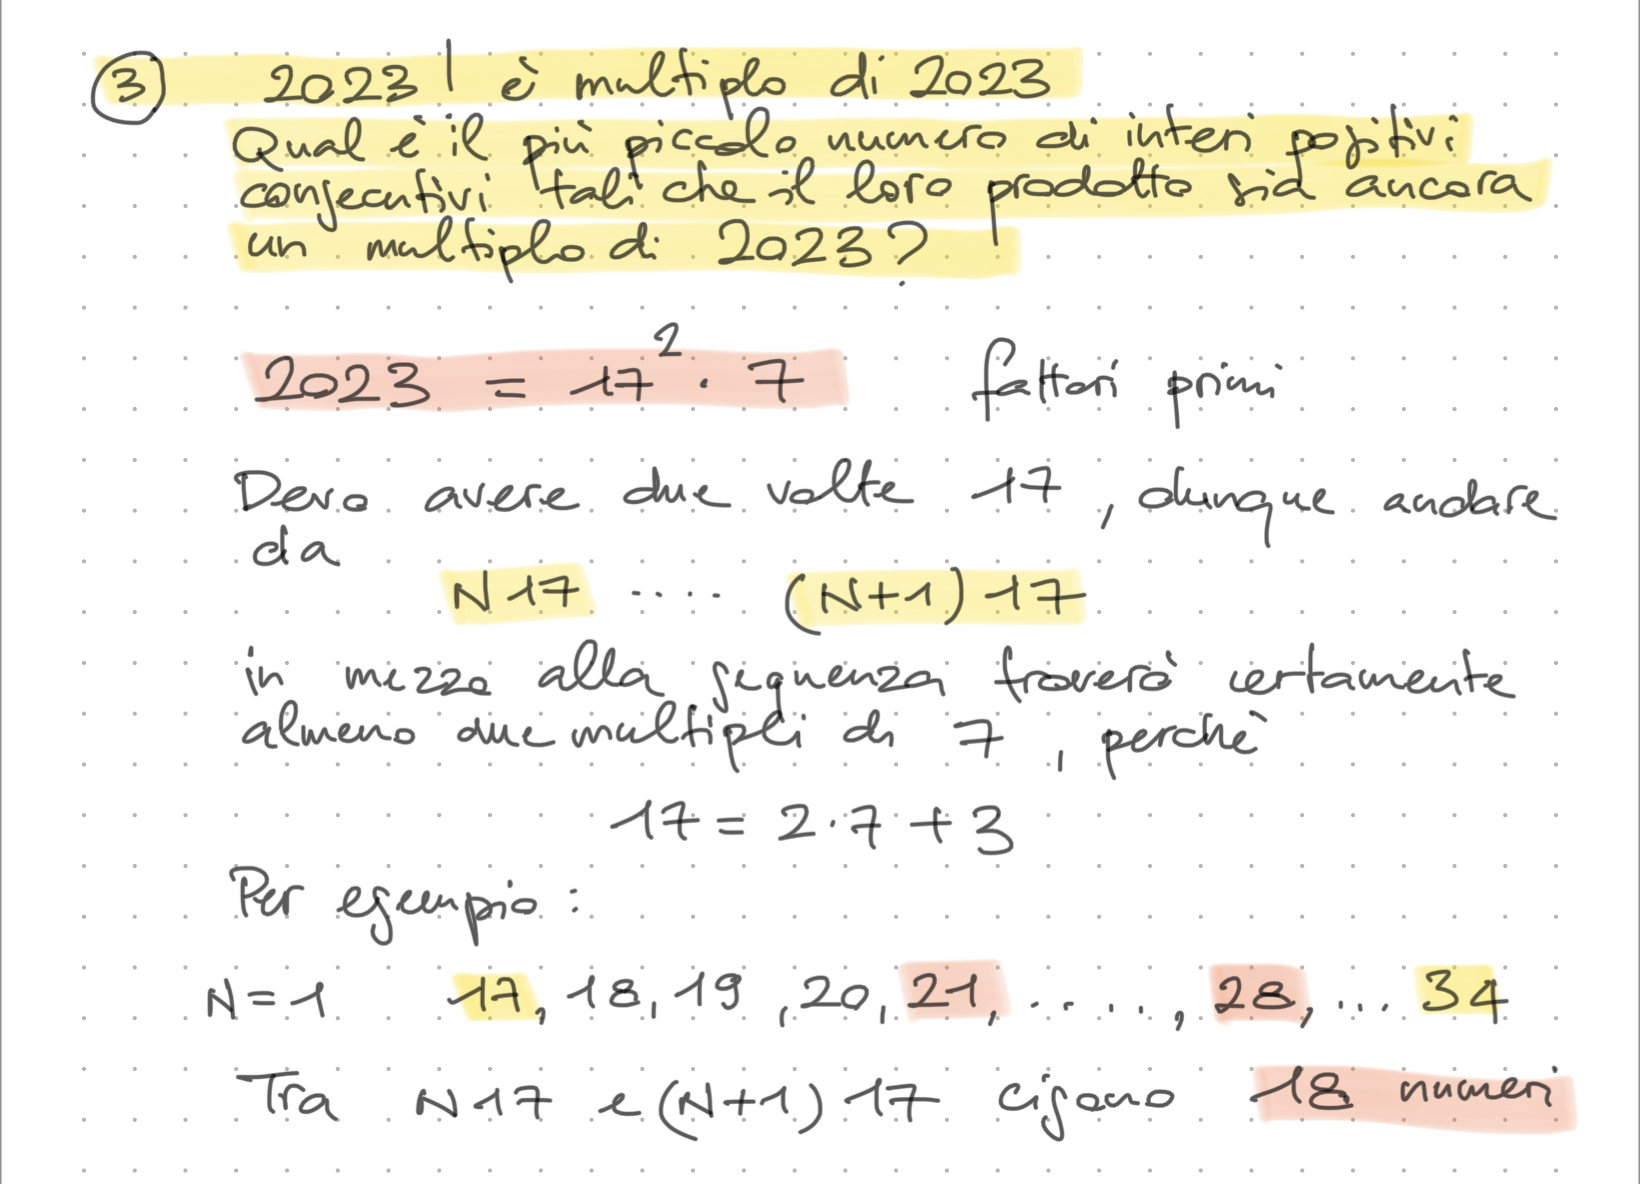 3 2023! è multiplo di 2023
Qual è il più piccolo numero di interi positivi
consecutivi tali che il loro prodotto sia ancora
un multiplo di 2023?
2023 = 17² · 7 fattori primi
Devo avere due volte 17, dunque andare
da
N17 .... (N+1)17
in mezzo alla sequenza troverò certamente
almeno due multipli di 7, perchè
17 = 2·7+3
Per esempio:
N=1 17, 18, 19, 20, 21, ....., 28, ... 34
Tra N17 e (N+1)17 ci sono 18 numeri